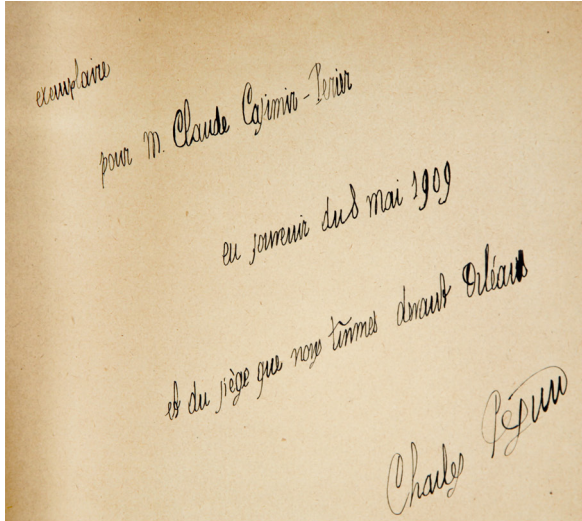 exemplaire
pour M. Claude Casimir-Perier
en souvenir du 8 mai 1909
et du siège que nous tînmes devant Orléans
Charles Péguy